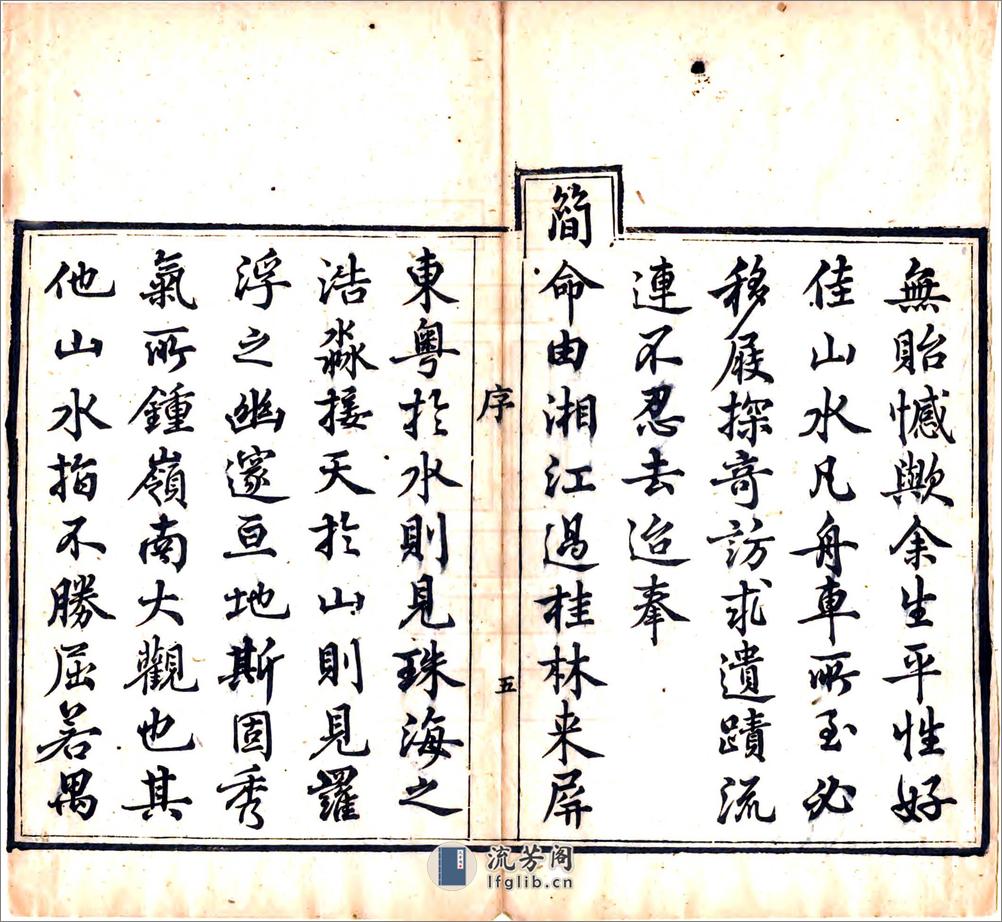 無貽憾歟余生平性好
佳山水凡舟車所至必
移屐探奇訪求遺蹟流
連不忍去迨奉
簡命由湘江過桂林来屏
序
五
東粤於水則見珠海之
浩淼接天於山則見羅
浮之幽邃亘地斯固秀
氣所鍾嶺南大觀也其
他山水指不勝屈若禺
流芳阁
lfglib.cn